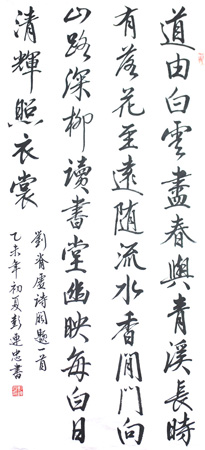 道由白雲盡春與青溪長時
有落花至遠隨流水香閒門向
山路深柳讀書堂幽映每白日
清輝照衣裳
劉脊虛詩闕題一首
乙未年初夏彭連忠書